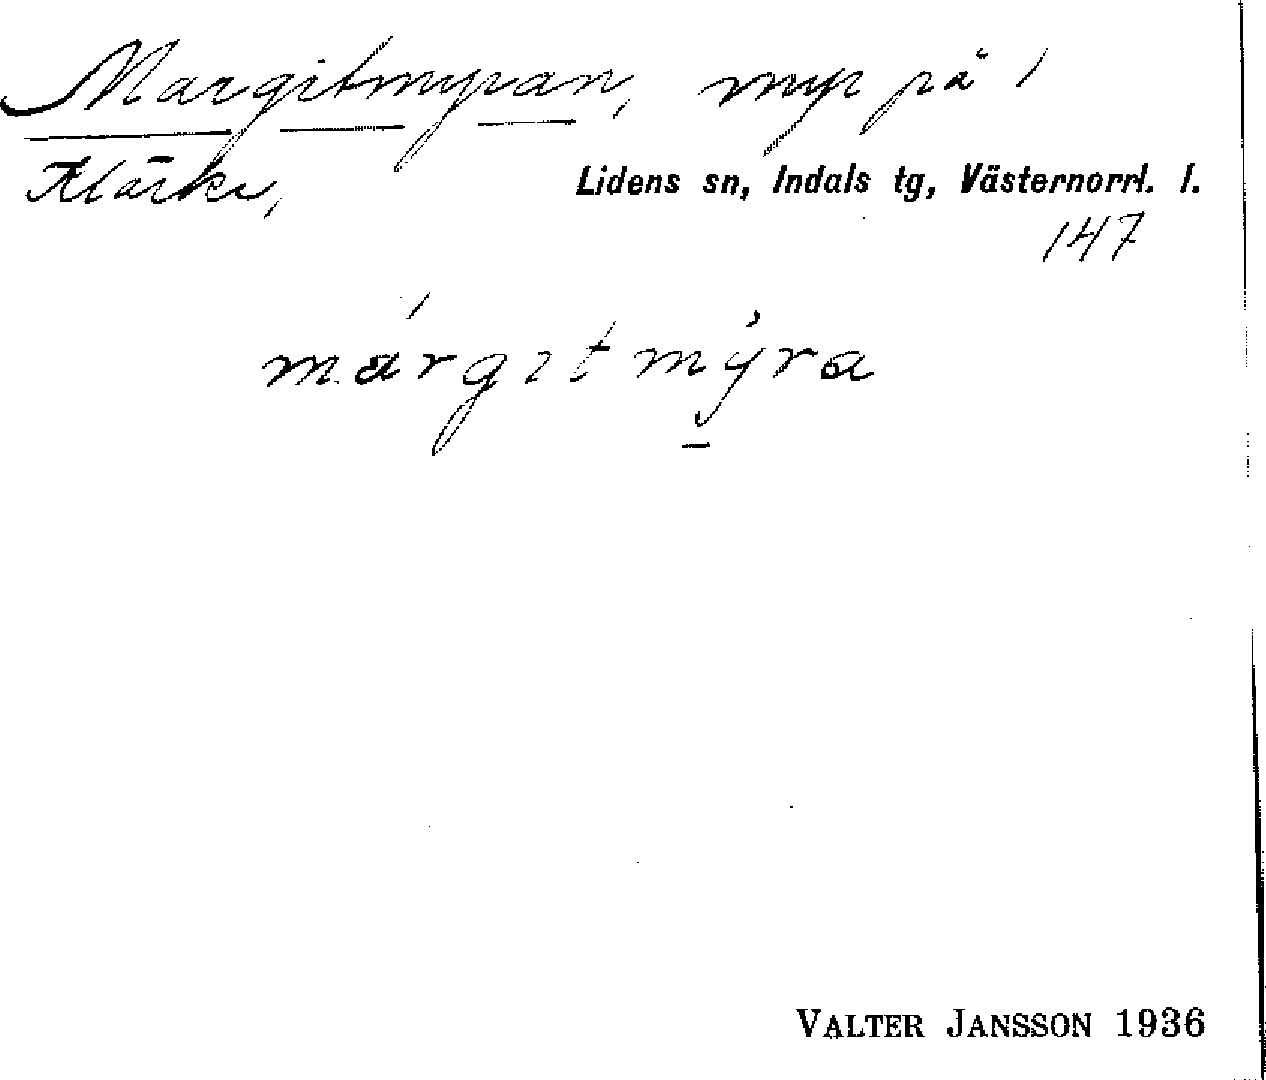 Margitmyran, myr på
Klärke, Lidens sn, Indals tg, Västernorrl. l.
147
márgıtmy̌ra
VALTER JANSSON 1936